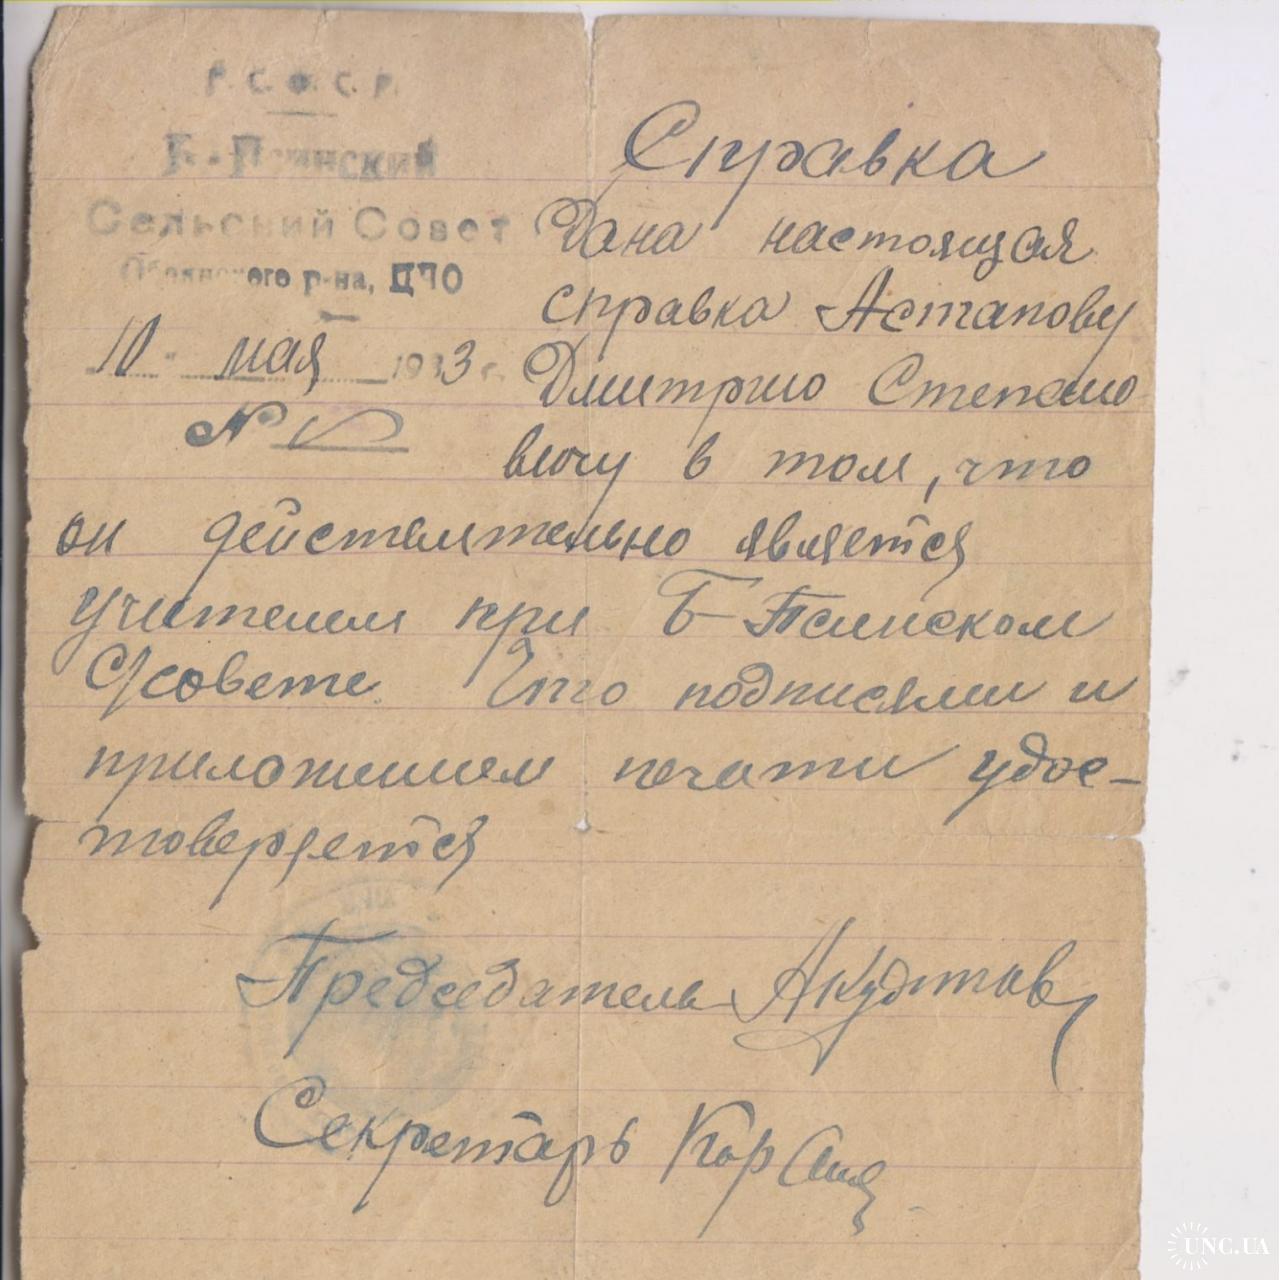 Р.С.Ф.С.Р.
Б.-Псинский
Сельский Совет
Обоянского р-на, ЦЧО
10 мая 1933 г.
№
Справка
Дана настоящая
справка Астапову
Дмитрию Степано
вичу в том, что
он действительно является
учителем при Б-Псинском
С/совете. Что подписями и
приложением печати удос-
товеряется
Председатель
Секретарь
UNC.UA